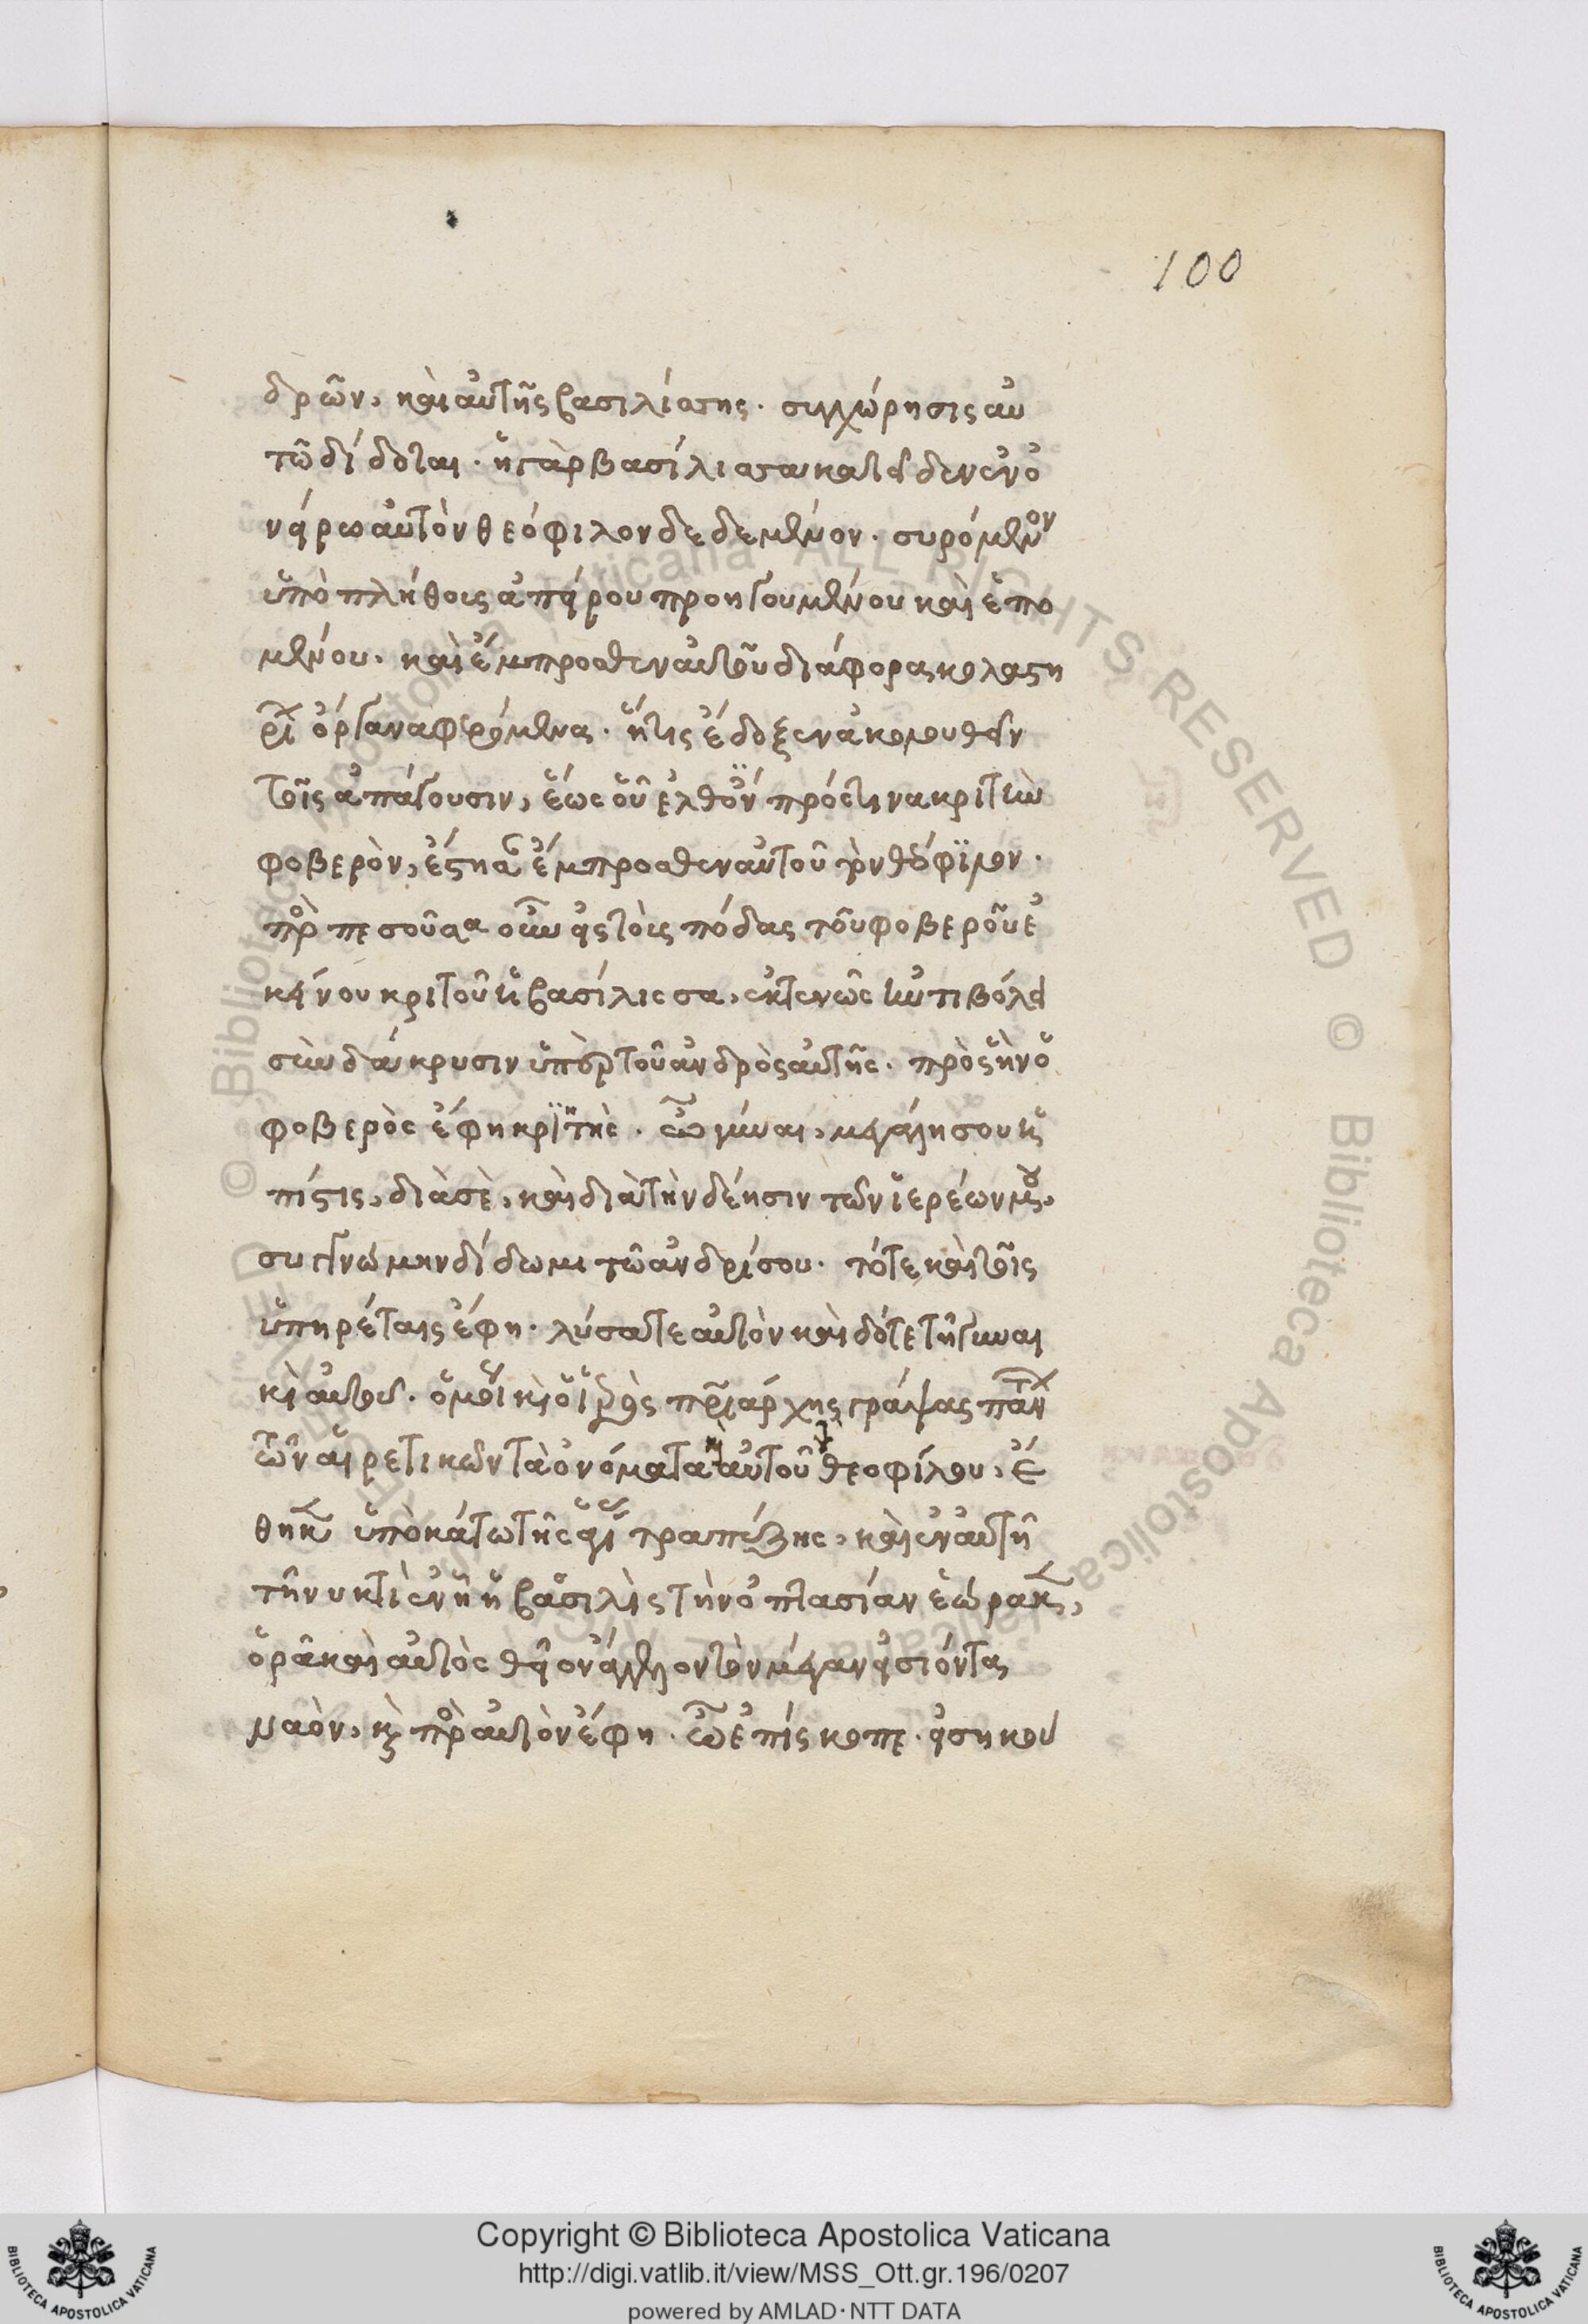 100
δρῶν, καὶ αὐτῆς βασιλίσσης. συγχώρησις αὐ
τῶ δίδοται. ἡ γὰρ βασίλισσα κατεῖδεν ἐν ὀ
νείρω αὐτὸν θεόφιλον δεδεμένον. συρόμενον
ὑπὸ πλήθους ἀπείρου προηγουμένου καὶ ἑπο
μένου. καὶ ἔμπροσθεν αὐτοῦ διάφορα κολαστή
ρια ὄργανα φερόμενα. ἥτις ἔδοξεν ἀκολουθεῖν
τοῖς ἀπάγουσιν, ἕως οὗ ἐλθὸν πρός τινα κριτὴν
φοβερὸν, ἔστησαν ἔμπροσθεν αὐτοῦ τὸν θεόφιλον.
προσπεσοῦσα οὖν εἰς τοὺς πόδας τοῦ φοβεροῦ ἐ
κείνου κριτοῦ ἡ βασίλισσα, ἐκτενῶς ἠντιβόλει
σὺν δάκρυσιν ὑπὲρ τοῦ ἀνδρὸς αὐτῆς. πρὸς ἣν ὁ
φοβερὸς ἔφη κριτὴς. ὦ γύναι, μεγάλη σου ἡ
πίστις, διὰ σὲ, καὶ διὰ τὴν δέησιν τῶν ἱερέων μου,
συγγνώμην δίδωμι τῶ ἀνδρί σου. τότε καὶ τοῖς
ὑπηρέταις ἔφη. λύσατε αὐτὸν καὶ δότε τῆ γυναι
κὶ αὐτοῦ. ὁμοίως καὶ ὁ ἱερὸς πατριάρχης γράψας πάντων
τῶν αἱρετικῶν τὰ ὀνόματα καὶ αὐτοῦ τοῦ θεοφίλου, ἔ
θηκεν ὑποκάτω τῆς ἁγίας τραπέζης, καὶ ἐν αὐτῆ
τῆ νυκτὶ ἐν ἧ ἡ βασιλὶς τὴν ὀπτασίαν ἑώρακεν,
ὁρᾶ καὶ αὐτὸς θεῖον ἄγγελον τὸν μέγαν εἰσιόντα
ναὸν, καὶ πρὸς αὐτὸν ἔφη. ὦ ἐπίσκοπε. εἰσηκού
Copyright © Biblioteca Apostolica Vaticana
http://digi.vatlib.it/view/MSS_Ott.gr.196/0207
powered by AMLAD·NTT DATA